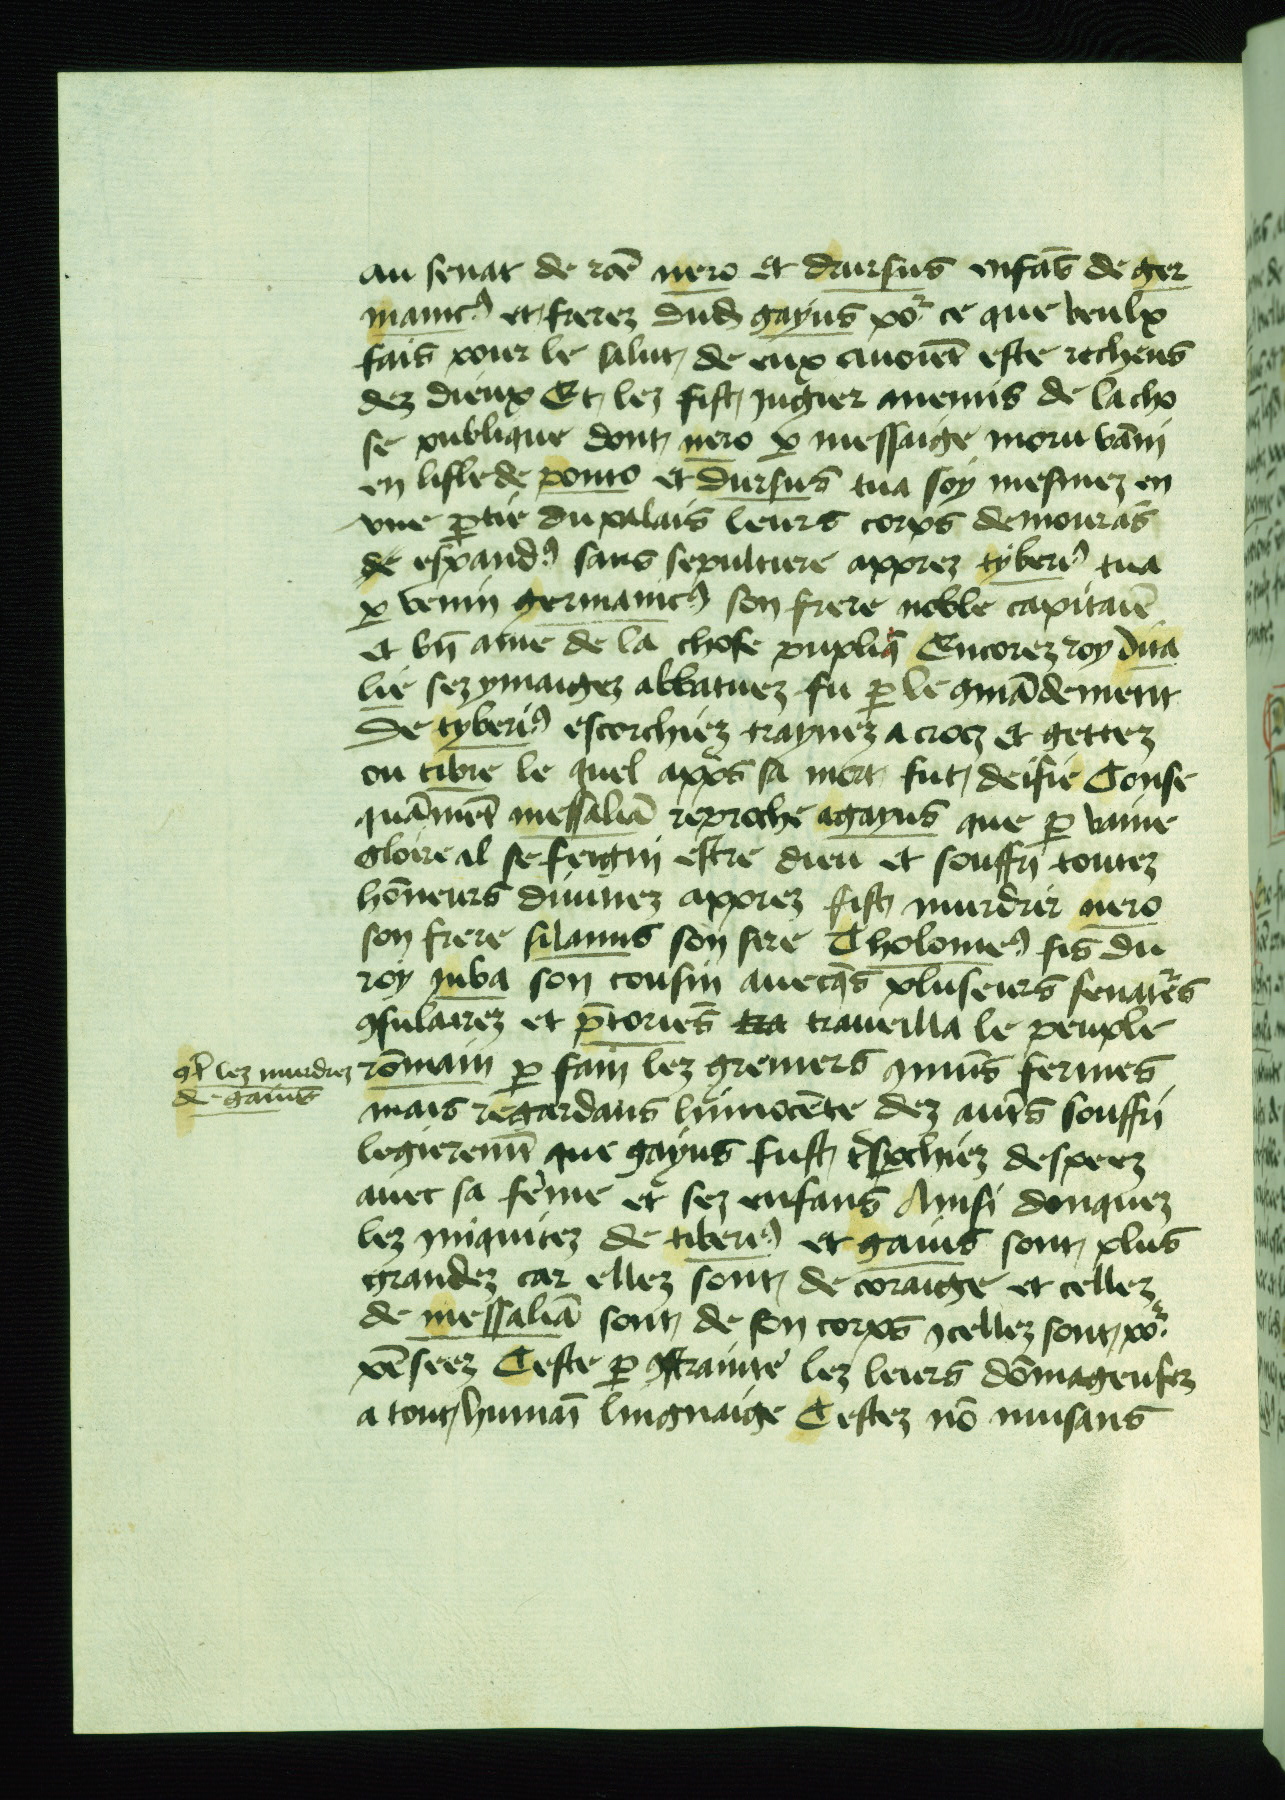 au senat de rōe nero et drursus enfās de ger
manicꝰ et freres dud gayus poʳ ce que veulx
fais pour le salut de eux auoiēt este recheus
dez dieux Et lez fist jugier anemis de la cho
se publique dont nero ꝑ messaige moru bāni
en lisle de ponto et drursus tua soy mesmez en
vne ꝑtie du palais leurs corps demourās
de espandꝰ sans sepulture apprez tyberiꝰ tua
ꝑ venin germanicꝰ son frere noble capitaiē
et vn̄ ame de la chose pupliq̄ Encorez roy dita
lie sez ymaigez abbatuez fu ꝑ le ꝯmādement
de tyberiꝰ escorchiez traynez a crocz et gettez
ou tibre le quel app̄s sa mort fut deifie Conse
quāmēt messaliā reproche a gayus que ꝑ vaine
gloire al se feigni estre dieu et souffri toutez
hōneurs diuinez apprez fist murdrir nero
son frere silanus son sire Tholomeꝰ fis du
roy juba son cousin auecq̄s pluseurs senatʳes
ꝯsulairez et p̄toriēs traueilla le peuple
rōmain ꝑ fain lez greniers ꝯmūs fermes
mais regardans linnocēte dez aut̄s souffri
legieremt̄ que gayus fust despeez
auec sa feme et sez enfans Ainsi donquez
lez iniquitez de tiberiꝰ et gaius sont plus
grandez car ellez sont de coraige et cellez
de messaliā sont de son corps ycellez sont poʳ
pēseez Ceste ꝑ ꝯtrainte lez leurs dōmageusez
a tout humaī linguaige Cestez nō nuisans
lez murdrez
de gaius